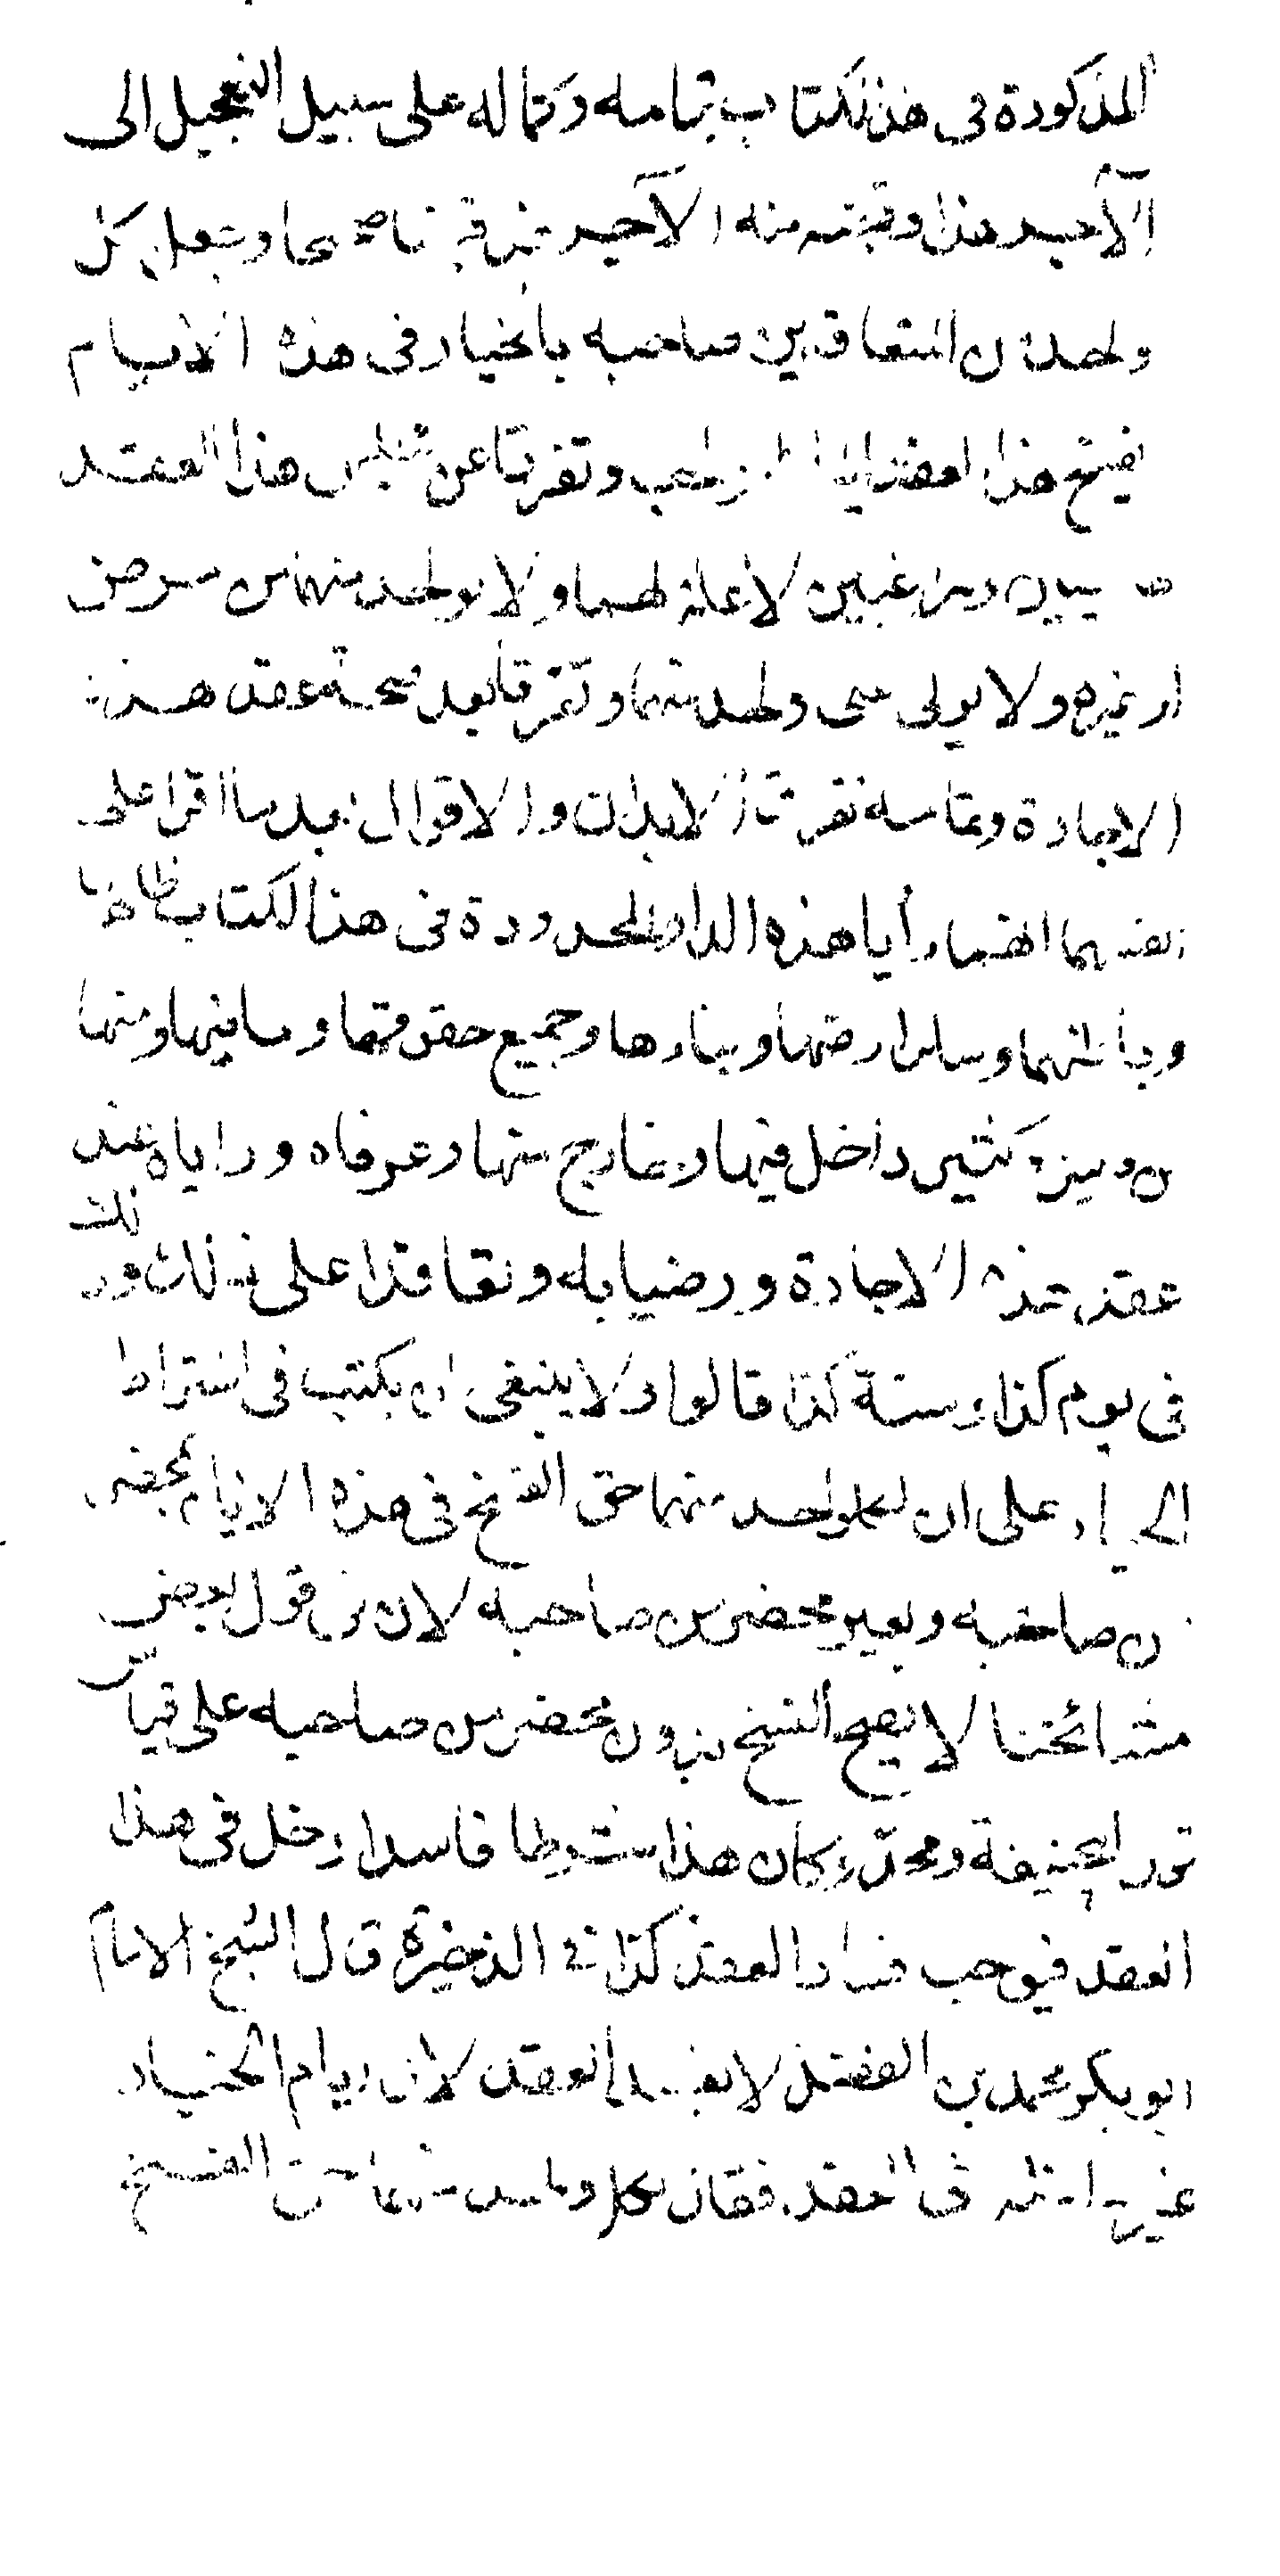 المذكورة فى هذا الكتاب بتمامه وكماله على سبيل التعجيل الى
الآجر هذا وقبضه منه الآجر هذا قبضا صحيحا وجعل كل
واحد من المتعاقدين صاحبه بالخيار فى هذه الايام
يفسخ هذا العقد ايا احب وتفرقا عن مجلس هذا العقد
صحيحين راغبين لا علة لهما ولا بواحد منهما من مرض
او غيره ولا يولى على واحد منهما وتفرقا بعد صحة عقد هذه
الاجارة وتمامه تفرق الابدان والاقوال بعد ما اقرا على
انفسهما انهما رأيا هذه الدار المحدودة فى هذا الكتاب ظاهرها
وباطنها وسائر ارضها وبنائها وجميع حقوقها وما فيها ومنها
من وكثير داخل فيها وخارج منها وعرفاه ورأياه عند
عقد هذه الاجارة ورضيا به وتعاقدا على ذلك وذلك
فى يوم كذا وسنة كذا قالوا ولا ينبغى ان يكتب فى اشتراط
الخيار على ان لكل واحد منهما حق الفسخ فى هذه الايام بمحضر
من صاحبه وبغير محضر من صاحبه لان من قول بعض
مشائخنا لا يصح الفسخ بدون محضر من صاحبه على قياس
قول ابى حنيفة ومحمد وكان هذا شرطا فاسدا دخل فى هذا
العقد فيوجب فساد العقد كذا فى الذخيرة قال الشيخ الامام
ابو بكر محمد بن الفضل لا يفسد العقد لان ايام الخيار
غير داخلة فى العقد فكان لكل واحد منهما حق الفسخ